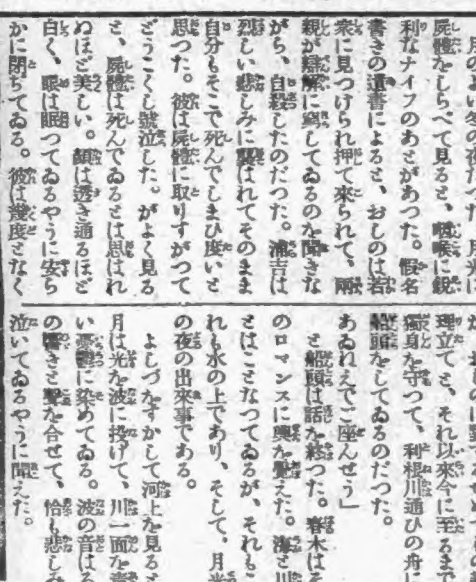 屍體をしらべて見ると、咽喉に鋭
利なナイフのあとがあつた。假名
書きの遺書によると、おしのは若
衆に見つけられ押て來られて、兩
親が辯解に窮してゐるのを聞きな
がら、自殺したのだつた。浦吉は
烈しい悲しみに襲はれてそのまま
自分もそこで死んでしまひ度いと
思つた。彼は屍體に取りすがつて
どうこくし號泣した。がよく見る
と、屍體は死んでゐるとは思はれ
ぬほど美しい。顏は透き通るほど
白く、眼は眠つてゐるやうに安ら
かに閉ぢてゐる。彼は幾度となく
埋立てと、それ以來今に至るまで
獨身を守つて、利根川通ひの舟に
船頭をしてゐるのだつた。
あゐれえでご座んせう」
と船頭は話を終つた。春木は
のロマンスに興を覺えた。海と川
とはことなつてゐるが、それもこ
れも水の上であり、そして、月光
の夜の出來事である。
よしづをすかして河上を見ると
月は光を波に投げて、川一面を靑
い憂鬱に染めてゐる。波の音はろ
の響きと聲を合せて、恰も悲しみ
泣いてゐるやうに聞えた。